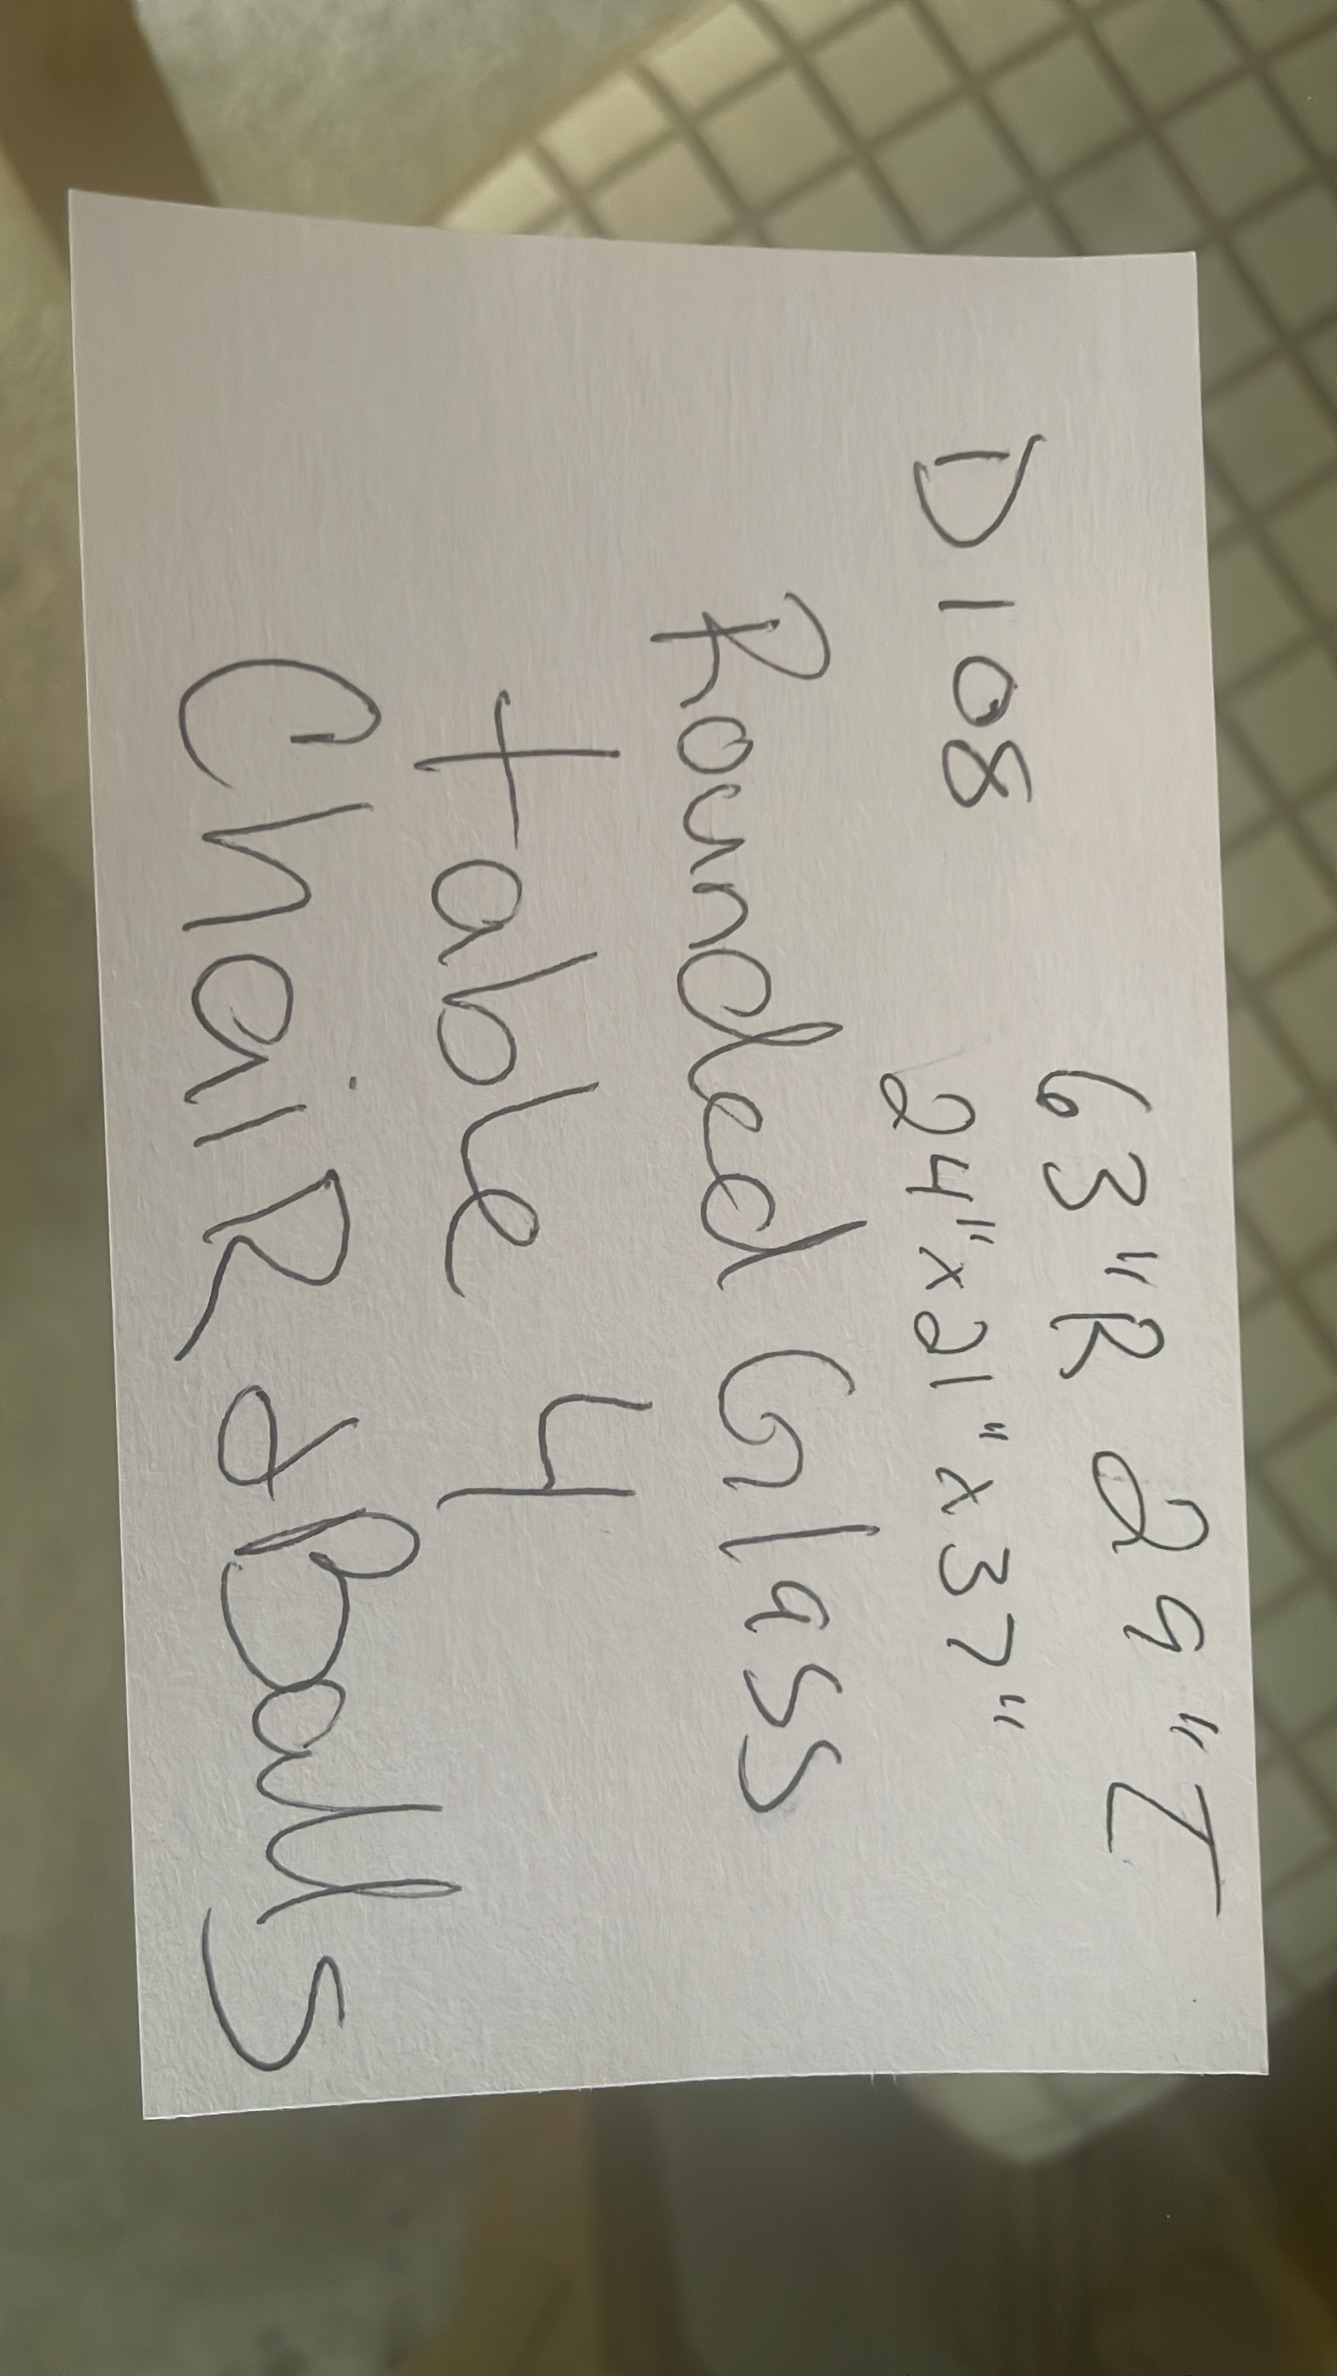 63"R 29"T
D108 24"x21"x37"
Rounded Glass
table 4
ChaiR & Balls